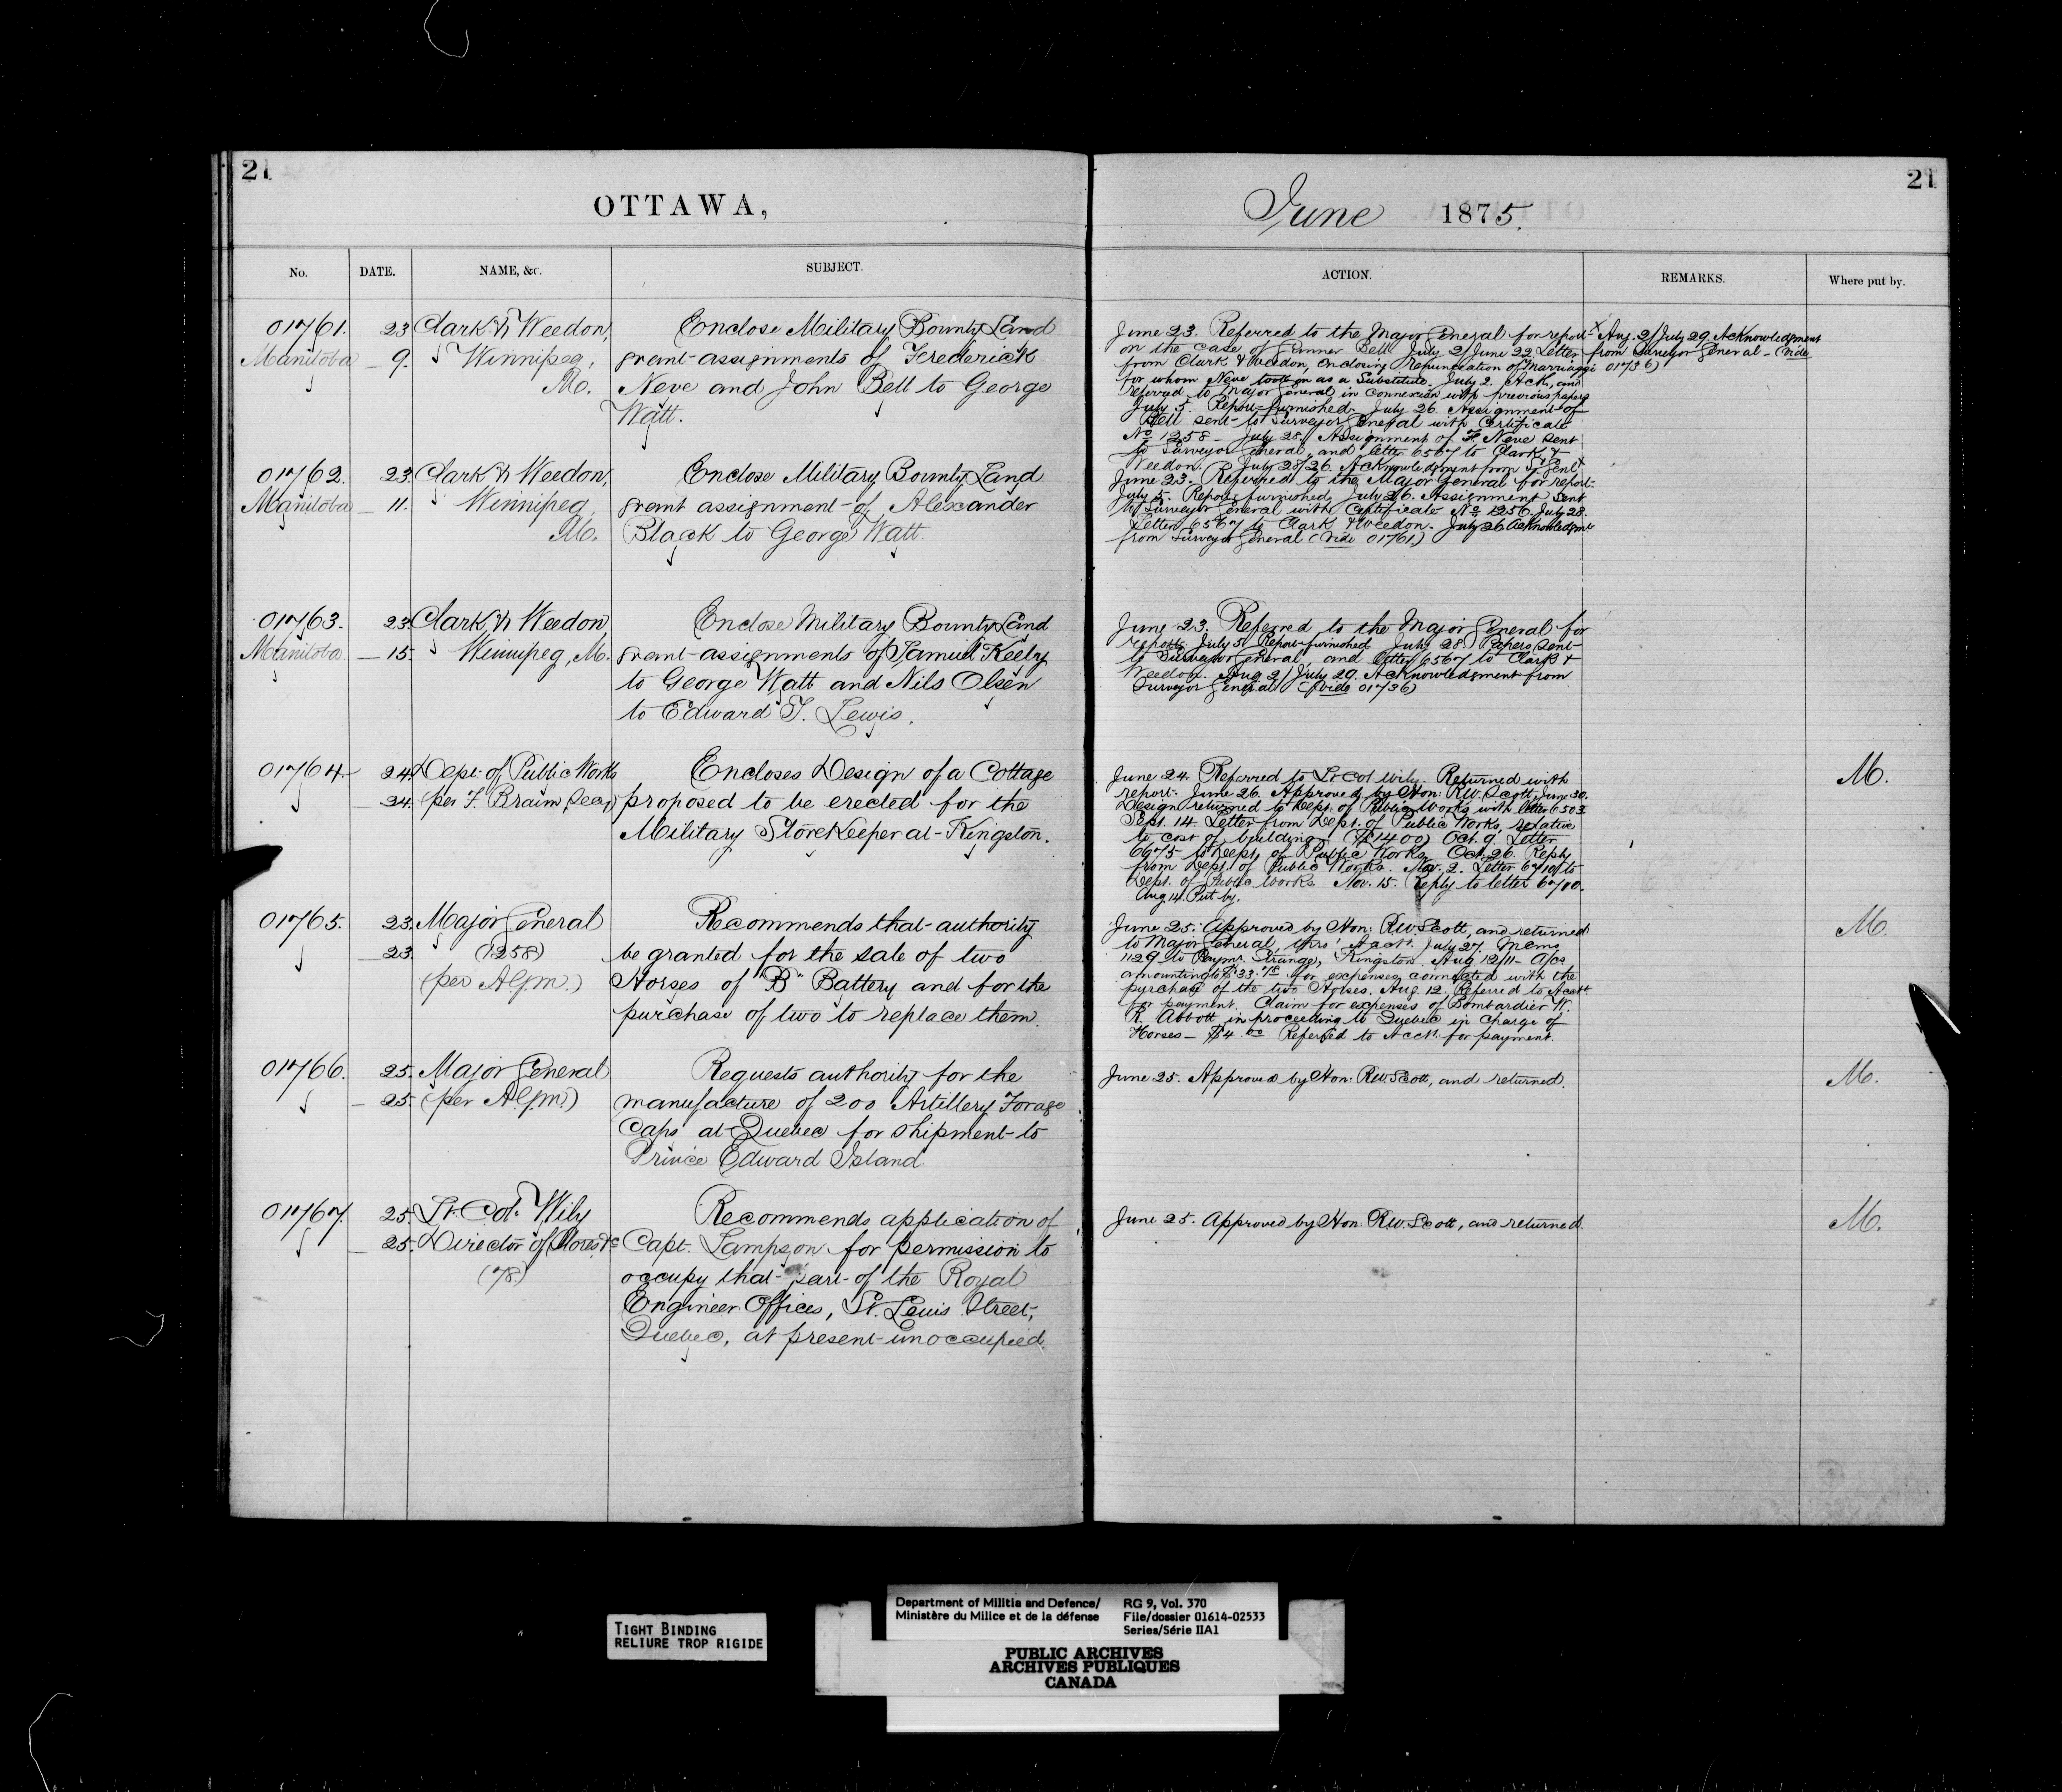 21
OTTAWA,
No.
DATE.
NAME, &c.
SUBJECT.
01761.
23
Clark & Weedon,
Enclose Military Bounty Land
Manitoba
9.
Winnipeg,
grant assignments of Frederick
M.
Neve and John Bell to George
Watt.
01762.
23.
Clark & Weedon,
Enclose Military Bounty Land
Manitoba
11.
Winnipeg
grant assignment of Alexander
M.
Black to George Watt.
01763.
23.
Clark & Weedon,
Enclose Military Bounty Land
Manitoba
15.
Winnipeg, M.
grant assignments of Samuel Keelry
to George Watt and Nils Olsen
to Edward T. Lewis.
01764.
24.
Dept. of Public Works
Encloses Design of a Cottage
24.
(per F. Braun, Secy)
proposed to be erected for the
Military Storekeeper at Kingston.
01765.
23.
Major General
Recommends that authority
23.
(1258)
be granted for the sale of two
(per A.G.M.)
Horses of "B" Battery and for the
purchase of two to replace them.
01766.
25.
Major General
Requests authority for the
25.
(per A.G.M.)
manufacture of 200 Artillery Forage
Caps at Quebec for shipment to
Prince Edward Island
01767.
25.
Lt. Col. Wily
Recommends application of
25.
Director of Stores &c
Capt. Lampson for permission to
(78)
occupy that part of the Royal
Engineer Offices, St. Louis Street,
Quebec, at present unoccupied.
21
June 1875.
ACTION.
REMARKS.
Where put by.
June 23. Referred to the Major General for report
on the case of Gunner Bell. July 2/June 22 Letter
from Clark & Weedon, enclosing Renunciation of Marriaggi
for whom Neve took on as a Substitute. July 2. Ack., and
referred to Major General in connexion with previous papers
July 5. Report furnished. July 26. Assignment of
Bell sent to Surveyor General with Certificate
No. 1258 - July 28. Assignment of F. Neve sent
to Surveyor General, and letter 6567 to Clark &
Weedon. July 28/26. Acknowledgment from S. Genl. x
x Aug. 2/July 29. Acknowledgment
from Surveyor General - (Vide
01736)
June 23. Referred to the Major General for report
July 5. Report furnished. July 26. Assignment sent
to Surveyor General with Certificate No. 1256. July 28.
Letter 6567 to Clark & Weedon. July 26 Acknowledgmt
from Surveyor General (Vide 01761)
June 23. Referred to the Major General for
report. July 5. Report furnished July 28. Papers sent
to Surveyor General, and letter 6567 to Clark &
Weedon. Aug 2/July 29. Acknowledgment from
Surveyor General (Vide 01736)
June 24. Referred to Lt Col Wily. Returned with
report. June 26. Approved by Hon: R.W. Scott, June 30.
Design returned to Dept. of Public Works with letter 6503
Sept. 14. Letter from Dept. of Public Works, relative
to cost of building. ($1400) Oct. 9. Letter
6675 to Dept. of Public Works. Oct. 26. Reply
from Dept. of Public Works. Nov. 2. Letter 6710 to
Dept. of Public Works. Nov. 15. Reply to letter 6700.
Aug 14. Put by.
M.
June 25. Approved by Hon: R.W. Scott, and returned
to Major General, thro' Acct. July 27. Memo
1129 to Paymr. Strange, Kingston. Aug 12/11 - a/cs
amounting to $33. for expenses connected with the
purchase of the two Horses. Aug. 12. Referred to Acct.
for payment. Claim for expenses of Bombardier W.
R. Abbott in proceeding to Quebec in charge of
Horses - $4.00 Referred to Acct. for payment.
M.
June 25. Approved by Hon: R.W. Scott, and returned.
M.
June 25. Approved by Hon R.W. Scott, and returned.
M.
TIGHT BINDING
RELIURE TROP RIGIDE
Department of Militia and Defence/
Ministère du Milice et de la défense
RG 9, Vol. 370
File/dossier 01614-02533
Series/Série IIA1
PUBLIC ARCHIVES
ARCHIVES PUBLIQUES
CANADA